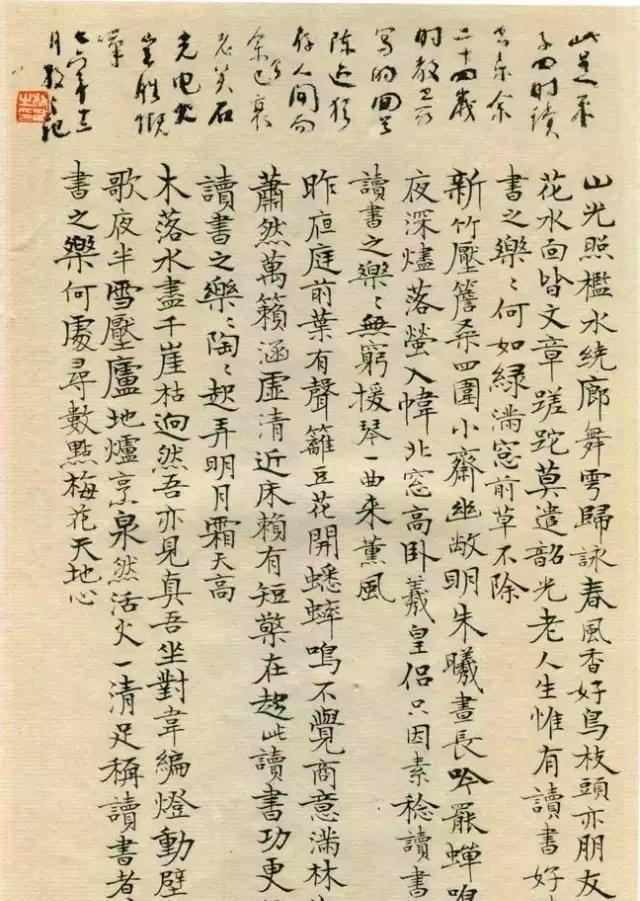 此是
子四时读
余
二十四歲
时教
写的回首
陈迹犹
存人间而
余已衰
老矣石
光电火
岂胜慨
七六年十二
月 记
山光照檻水繞廊舞雩歸詠春風香好鳥枝頭亦朋友
花水面皆文章蹉跎莫遣韶光老人生惟有讀書好
書之樂〻何如綠滿窓前草不除
新竹壓簷桑四圍小齋幽敞明朱曦晝長吟罷蟬鳴
夜深燼落螢入幃北窓高臥羲皇侣只因素稔讀書
讀書之樂〻無窮援琴一曲来薰風
昨夜庭前葉有聲籬豆花開蟋蟀鳴不覺商意滿林
蕭然萬籟涵虛清近床賴有短檠在趁此讀書功更
讀書之樂〻陶〻起弄明月霜天高
木落水盡千崖枯迥然吾亦見真吾坐對韋編燈動壁
歌夜半雪壓廬地爐烹泉然活火一清足稱讀書者
書之樂何處尋數點梅花天地心